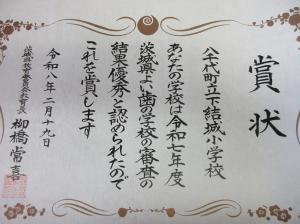 賞状
八千代町立下結城小学校
あなたの学校は令和七年度
茨城県よい歯の学校の審査の
結果優秀と認められたので
これを賞します
令和八年二月十九日
茨城県教育委員会教育長
柳橋常喜